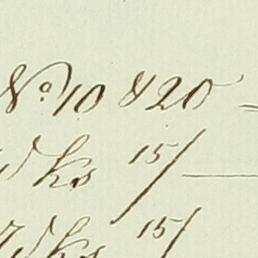 No 10 & 20 =
ks 15/ —
ks 15/